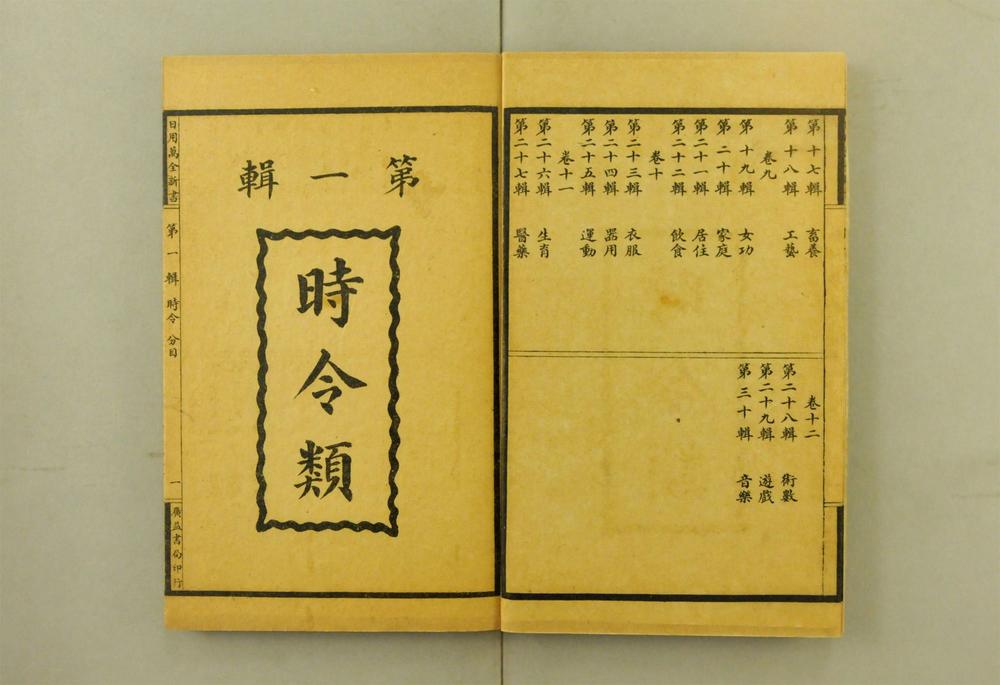 第十七輯 畜養
第十八輯 工藝
卷九
第十九輯 女功
第二十輯 家庭
第二十一輯 居住
第二十二輯 飲食
卷十
第二十三輯 衣服
第二十四輯 器用
第二十五輯 運動
卷十一
第二十六輯 生育
第二十七輯 醫藥
卷十二
第二十八輯 術數
第二十九輯 遊戲
第三十輯 音樂
第一輯
時令類
日用萬全新書 第一輯 時令 分目 一 廣益書局印行